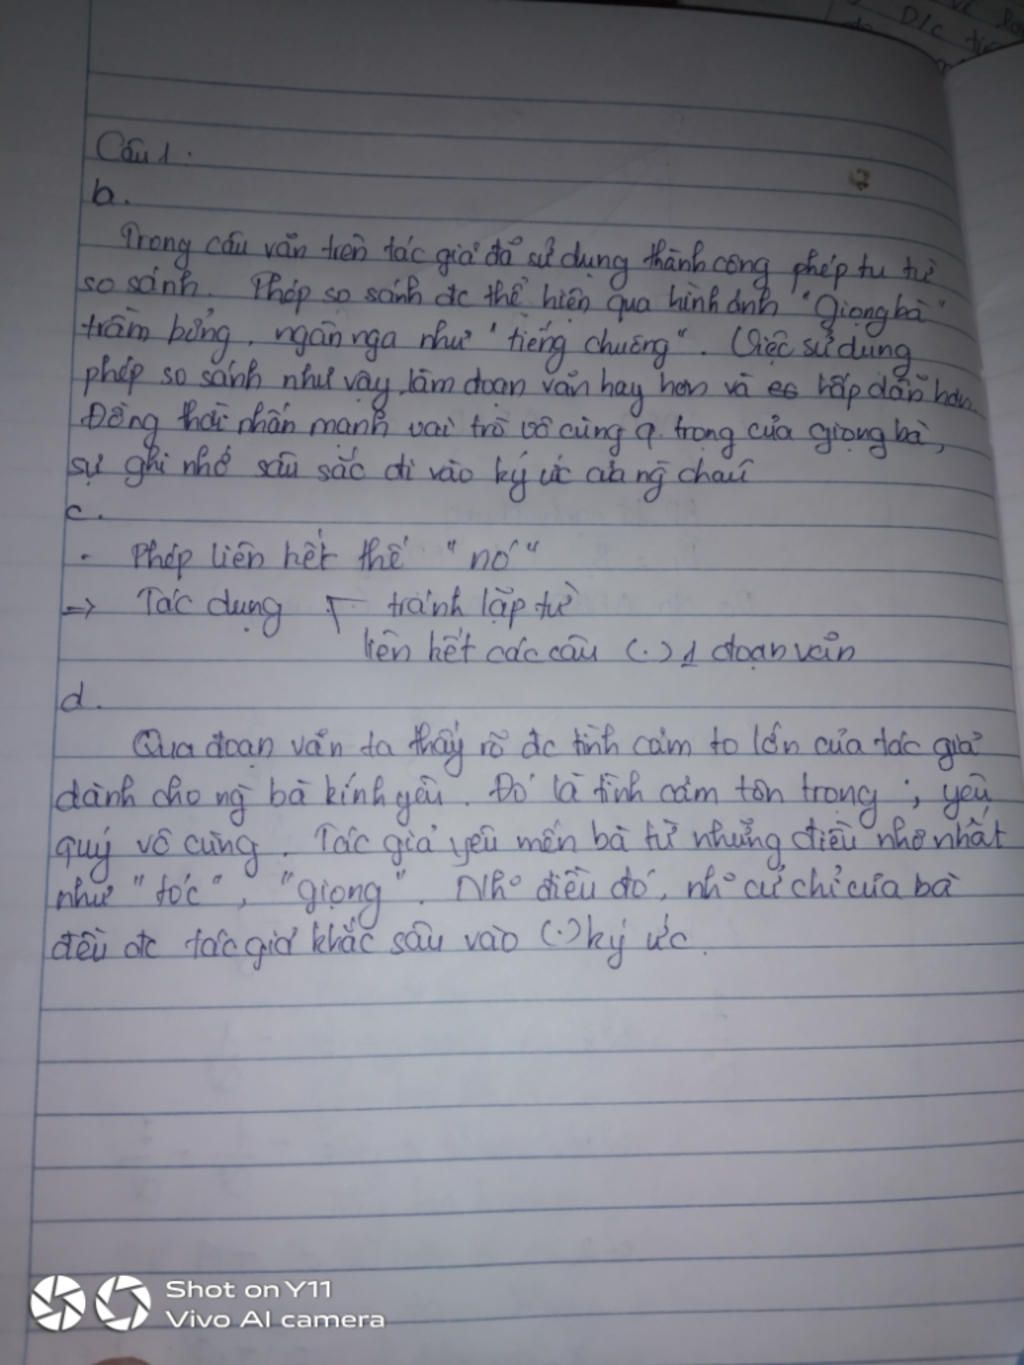 Câu 1.
b.
Trong câu văn trên tác giả đã sử dụng thành công phép tu từ
so sánh. Phép so sánh đc thể hiện qua hình ảnh "Giọng bà"
trầm bổng, ngân nga như "tiếng chuông". Việc sử dụng
phép so sánh như vậy làm đoạn văn hay hơn và hấp dẫn hơn.
Đồng thời nhấn mạnh vai trò vô cùng q. trọng của giọng bà,
sự ghi nhớ sâu sắc đi vào ký ức của ng cháu
c.
- Phép liên kết thế "nó"
=> Tác dụng - tránh lặp từ
liên kết các câu (.) 1 đoạn văn
d.
Qua đoạn văn ta thấy rõ đc tình cảm to lớn của tác giả
dành cho ng bà kính yêu. Đó là tình cảm tôn trọng, yêu
quý vô cùng. Tác giả yêu mến bà từ những điều nhỏ nhất
như "tóc", "giọng". Nhờ điều đó, cử chỉ của bà
đều đc tác giả khắc sâu vào (.) ký ức.
D/c
Shot on Y11
Vivo AI camera